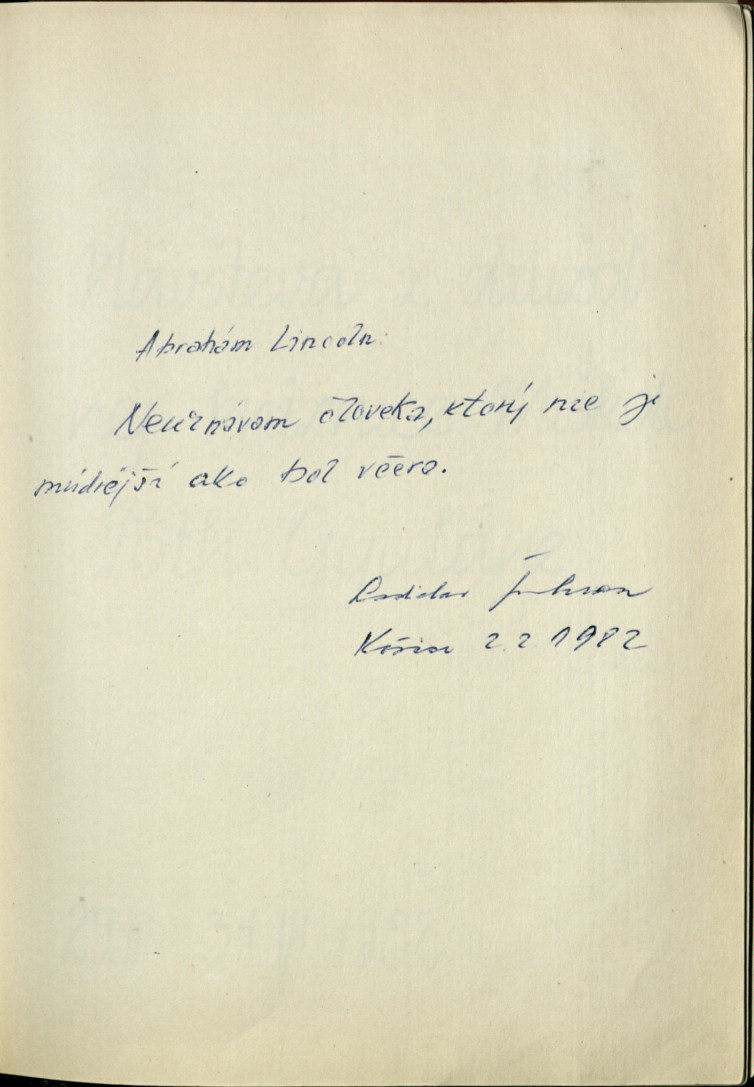 Abrahám Lincoln:
Neuznávam človeka, ktorý nie je
múdrejší ako bol včera.
Ladislav
Košice 2.2.1982